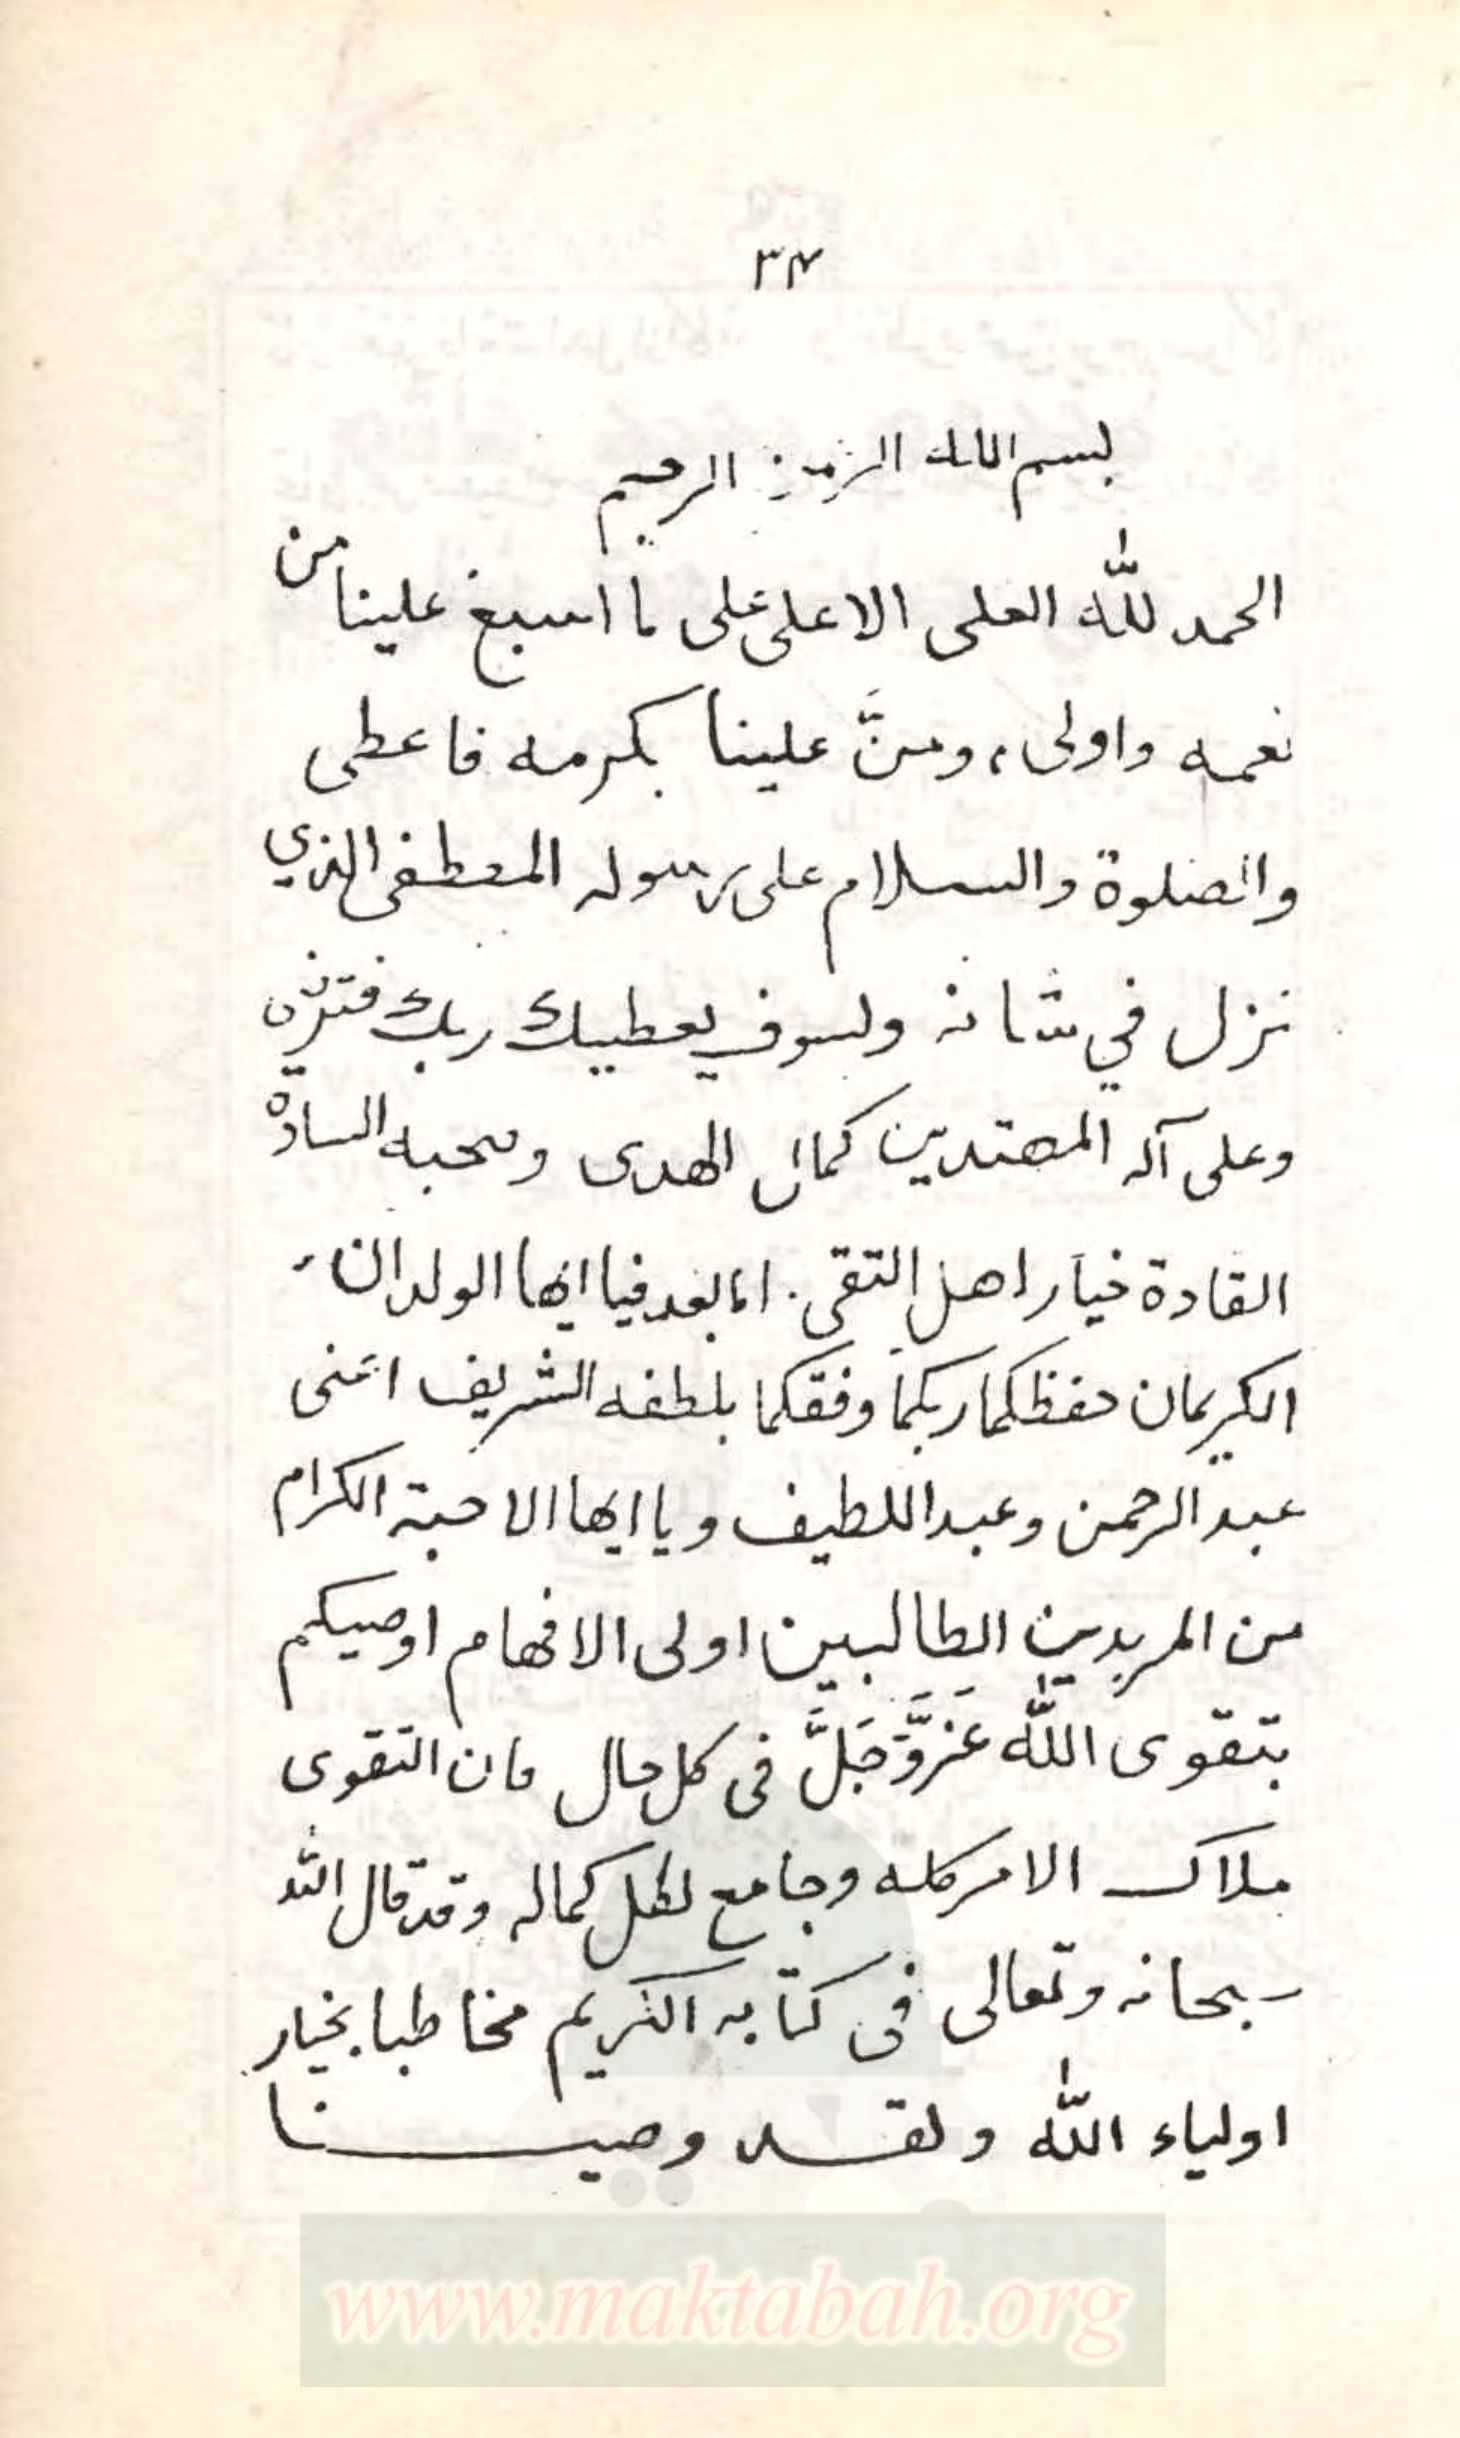 ۳۴
بسم الله الرحمن الرحيم
الحمد لله العلى الاعلى على ما اسبغ علينا من
نعمه واولى، ومنَّ علينا بكرمه فاعطى
والصلوة والسلام على رسوله المصطفى الذي
نزل في شانه ولسوف يعطيك ربك فترضى
وعلى آله المهتدين كمال الهدى وصحبه السادة
القادة خيار اهل التقى. اما بعد فيا ايها الولدان
الكريمان حفظكما ربكما وفقكما بلطفه الشريف اعنى
عبد الرحمن وعبد اللطيف ويا ايها الاحبة الكرام
من المريدين الطالبين اولى الافهام اوصيكم
بتقوى الله عَزَّوَجَلَّ فى كل حال فان التقوى
ملاك الامر كله وجامع لكل كماله وقد قال الله
سبحانه وتعالى فى كتابه الكريم مخاطبا بخيار
اولياء الله ولقد وصينا
www.maktabah.org